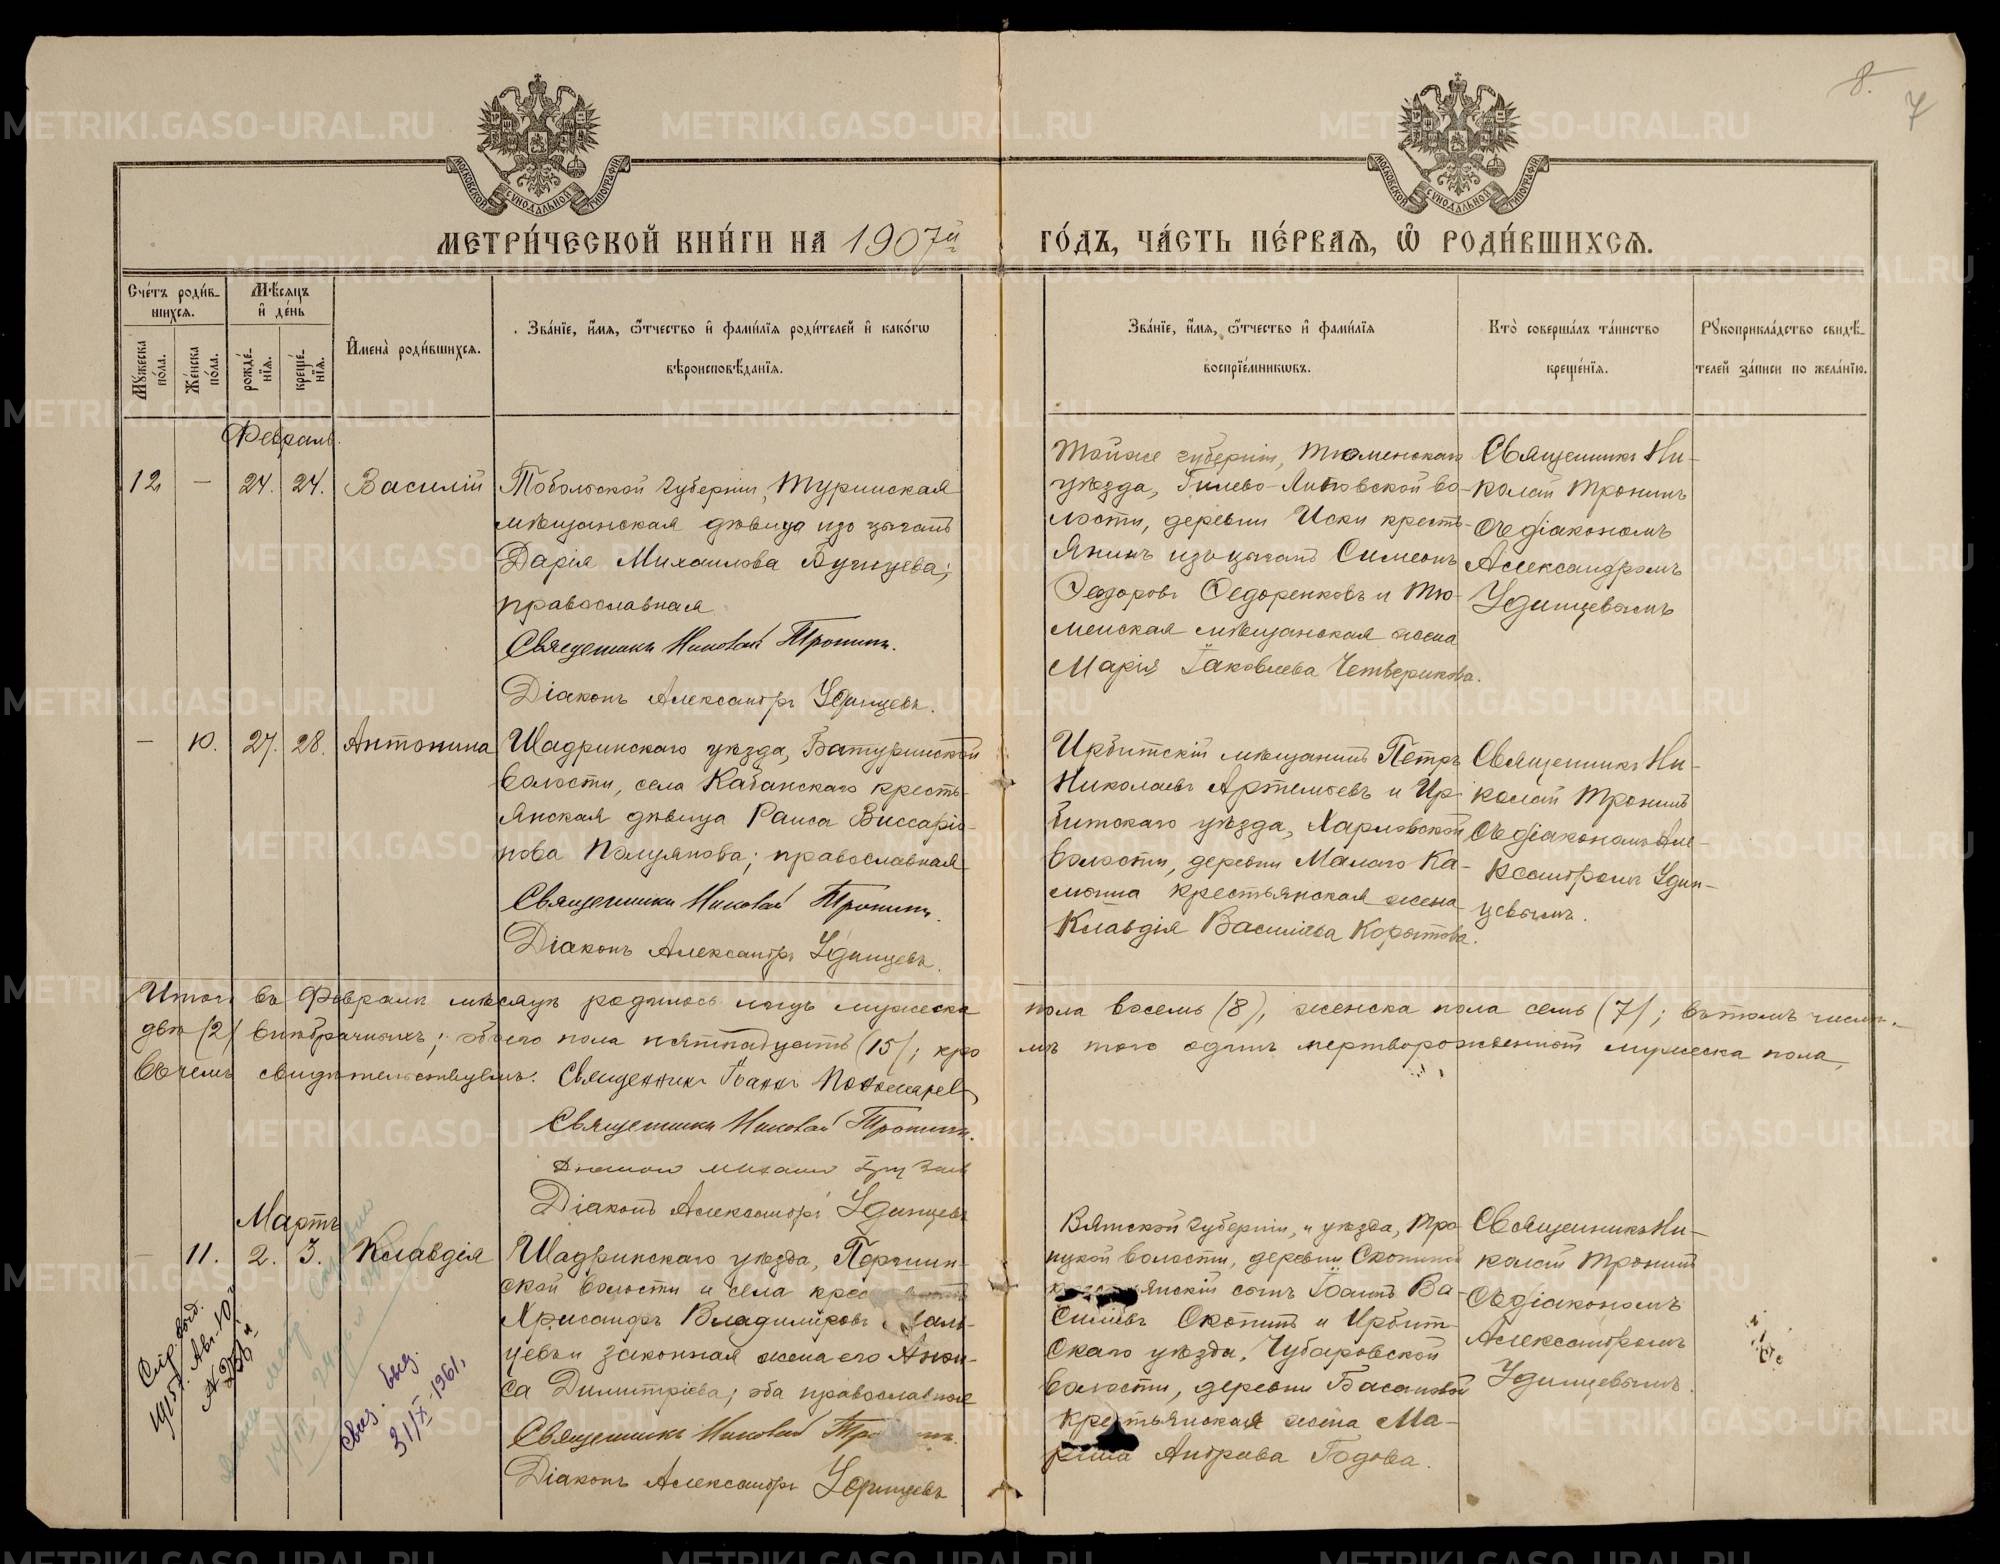 8.
7
МОСКОВСКОЙ СѴНОДАЛЬНОЙ ТИПОГРАФІИ
МОСКОВСКОЙ СѴНОДАЛЬНОЙ ТИПОГРАФІИ
МЕТРИ́ЧЕСКОЙ КНИ́ГИ НА 1907й
ГО́ДЪ, ЧА́СТЬ ПЕ́РВАѦ, Ѽ РОДИ́ВШИХСѦ.
Сче́тъ роди́в-
шихсѧ.
Мꙋжеска по́ла.
Же́нска по́ла.
Мѣ́сѧцъ и҆ де́нь
рожде́-
нїѧ.
креще́-
нїѧ.
И҆мена̀ роди́вшихсѧ.
Зва́нїе, и҆́мѧ, ѻ҆́тчество и҆ фами́лїѧ роди́телей и҆ како́гѡ
вѣроисповѣ́данїѧ.
Зва́нїе, и҆́мѧ, ѻ҆́тчество и҆ фами́лїѧ
воспрїе́мникѡвъ.
Кто̀ соверша́лъ та́инство
креще́нїѧ.
Рꙋкоприкла́дство свидѣ́-
телей за́писи по жела́нїю.
Февраль.
12 — 24. 24. Василій
Тобольской губерніи, Туринская
мѣщанская дѣвица изъ цыганъ
Дарія Михаилова
православная
Священникъ Николай Тронинъ.
Діаконъ Александръ Удинцевъ.
Тойже губерніи, Тюменскаго
уѣзда, Гилево-Липовской во-
лости, деревни Иски кресть-
янинъ изъ цыганъ Симеонъ
Ѳеодоровъ Ѳедоренковъ и Тю-
менская мѣщанская жена
Марія Іаковлева Четверикова.
Священникъ Ни-
колай Тронинъ
съ діакономъ
Александромъ
Удинцевымъ
— 10. 27. 28. Антонина
Шадринскаго уѣзда, Батуринской
волости, села Кабанскаго кресть-
янская дѣвица Раиса Виссаріо-
нова Полуянова; православная
Священникъ Николай Тронинъ.
Діаконъ Александръ Удинцевъ.
Ирбитскій мѣщанинъ Петръ
Николаевъ Артемьевъ и Ир-
битскаго уѣзда, Харловской
волости, деревни Малаго Ка-
крестьянская жена
Клавдія Васильева Корытова.
Священникъ Ни-
колай Тронинъ
съ діакономъ Але-
ксандромъ Удин-
цевымъ.
Итого въ Февралѣ мѣсяцѣ родилось лицъ мужеска пола восемь (8), женска пола семь (7); въ томъ числѣ
двѣ (2) внѣбрачныхъ; обоего пола пятнадцать (15); кромѣ того одинъ мертворожденный мужеска пола,
въ чемъ свидѣтельствуемъ. Священникъ Іоаннъ Пономаревъ
Священникъ Николай Тронинъ.
Михаил
Діаконъ Александръ Удинцевъ
Мартъ
— 11. 2. 3. Клавдія
Шадринскаго уѣзда, Першин-
ской волости и села
Хрисанфъ Владиміровъ Маль-
цевъ и законная жена его Анфи-
са Димитріева; оба православные
Священникъ Николай Тронинъ.
Діаконъ Александръ Удинцевъ
Вятской губерніи, и уѣзда, Тро-
ицкой волости, деревни Скопиной
крестьянскій сынъ Іоаннъ Ва-
сильевъ Скопинъ и Ирбит-
скаго уѣзда, Чубаровской
волости, деревни Басановой
крестьянская жена Ма-
Годова.
Священникъ Ни-
колай Тронинъ
съ діакономъ
Александромъ
Удинцевымъ.
1915 г. Авг. 10
Свид. выд.
31/X-1961.